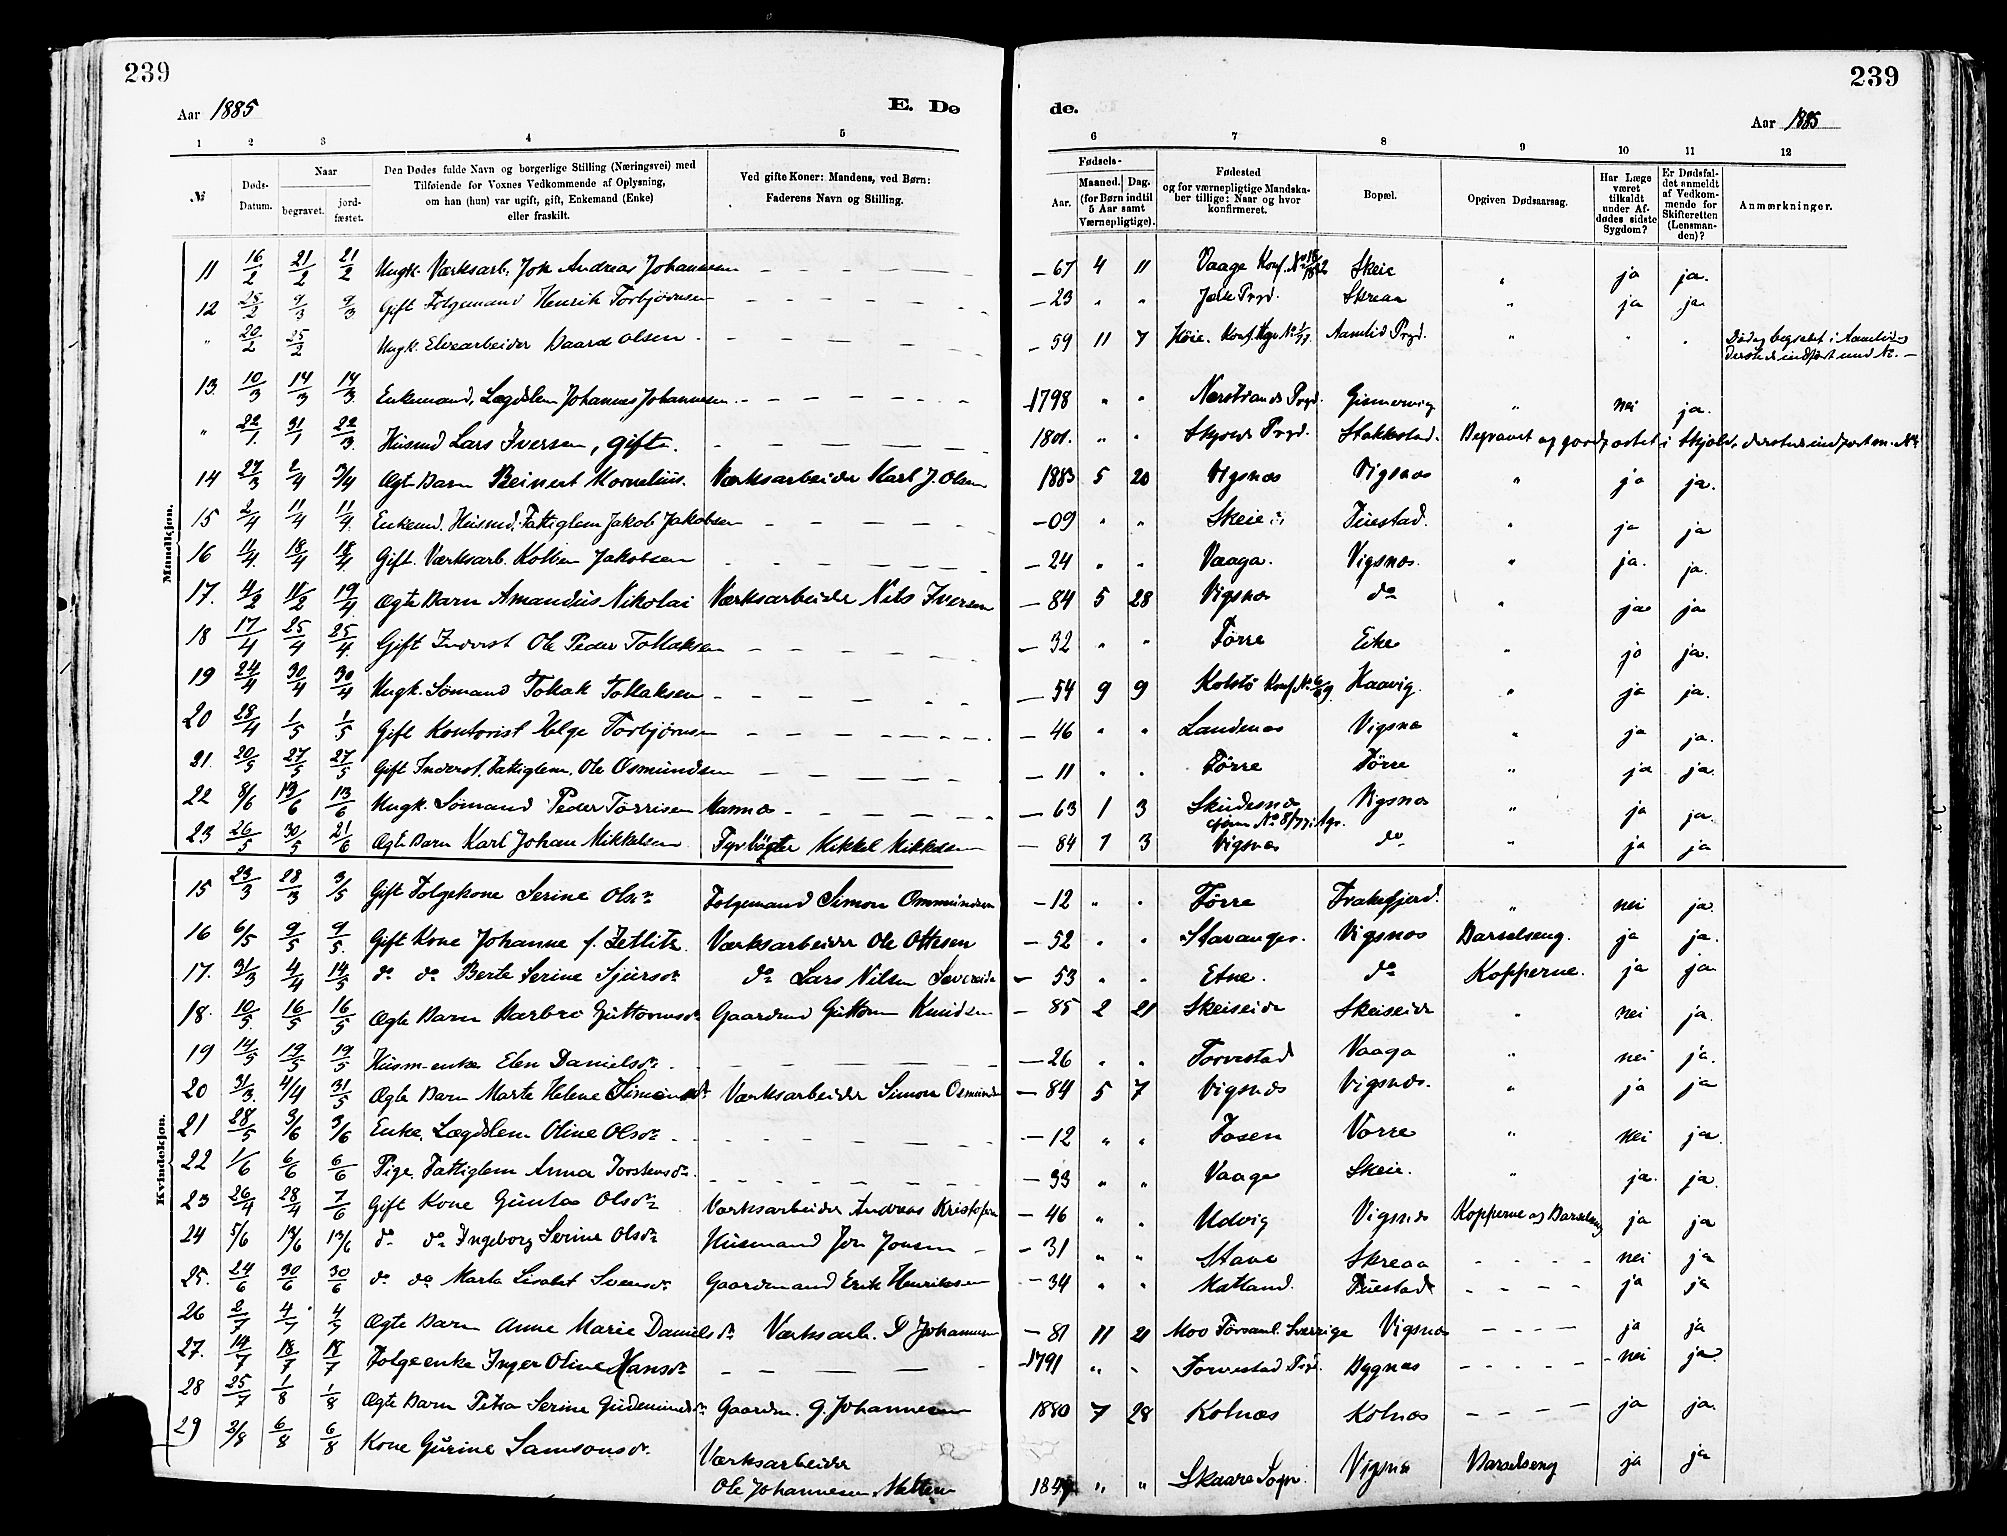 239
239
Aar 1885
E. Dø
de.
Aar 1885
1 2 3 4 5 6 7 8 9 10 11 12
№
Døds-Datum.
Naar
begravet.
jord-fæstet.
Den Dødes fulde Navn og borgerlige Stilling (Næringsvei) med
Tilføiende for Voxnes Vedkommende af Oplysning,
om han (hun) var ugift, gift, Enkemand (Enke)
eller fraskilt.
Ved gifte Koner: Mandens, ved Børn:
Faderens Navn og Stilling.
Fødsels-
Aar.
Maaned. Dag.
(for Børn indtil
5 Aar samt
Værnepligtige).
Fødested
og for værnepligtige Mandska-
ber tillige: Naar og hvor
konfirmeret.
Bopæl.
Opgiven Dødsaarsag.
Har Læge
været
tilkaldt
under Af-
dødes sidste
Sygdom?
Er Dødsfal-
det anmeldt
af Vedkom-
mende for
Skifteretten
(Lensman-
den)?
Anmærkninger.
Mandkjøn.
11 16/2 21/2 21/2 Ungk. Værksarb. Joh Andreas Johannesen – 67 4 11 Vaage Konf. Skeie " ja ja.
12 25/2 9/3 9/3 Gift Folgemand Henrik Torbjørnsen – 23 " " Skreaa " ja ja.
" 20/2 25/2 Ungk. Elvearbeider Baard Olsen – 59 11 7 Aamlid Prgd. " " "
13. 10/3 14/3 14/3 Enkemand, Lægdslem Johannes Johannesen – 1798 " " Nærstrands Prgd. Ginnervig " nei ja.
" 22/1 31/1 22/3 Husmd Lars Iversen, gift. 1801. " " Skjold Prgd. Stakkestad. Begravet og jordfæstet i Skjold,
14 27/3 2/4 3/4 Ægte Barn Reinert Kornelius. Værksarbeider Karl J. Olsen 1883 5 20 Vigsnæs Vigsnæs " ja ja.
15 2/4 11/4 11/4 Enkemd. Husmd. Fattiglem Jakob Jakobsen – 09 " " Skeie Tuestad. " ja ja
16 11/4 18/4 18/4 Gift. Værksarb. Kolben Jakobsen – 24 " " Vaaga. Vigsnæs. " ja. ja.
17. 4/2 11/2 19/4 Ægte Barn Amandus Nikolai Værksarbeider Nils Iversen – 84 5 28 Vigsnæs do " ja ja
18 17/4 25/4 25/4 Gift Inderst Ole Peder Tollaksen – 32 " " Førre Eike " ja ja.
19 24/4 30/4 30/4 Ungk. Sømand Tollak Tollaksen – 54 9 9 Kolstø Haavig. " ja ja.
20 28/4 1/5 1/5 Gift Kontorist Helge Torbjørnsen – 46 " " Landenæs Vigsnæ " ja ja.
21. 20/5 27/5 27/5 Gift Inderst. Fattiglem. Ole Osmundsen – 11 " " Førre Førre " ja ja.
22 8/6 13/6 13/6 Ungk. Sømand Peder Tørrisen Mannæs – 63 1 3 Skudesnæs Vigsnæs " ja ja.
23 26/5 30/5 21/6 Ægte Barn Karl Johan Mikkelsen Fyrbøgter Mikkel Mikkelsen – 84 7 3 Vigsnæs do " ja ja
Kvindekjøn.
15 23/3 28/3 3/5 Gift Folgekone Serine Olsdr Folgemand Simon Ommundsen – 12 " " Førre Frakkefjord. " nei ja.
16 6/5 9/5 9/5 Gift Kone Johanne f. Zetlitz Værksarbeider Ole Ottesen – 52 " " Stavanger. Vigsnæs Barselseng. ja ja.
17. 31/3 4/4 14/5 do do Berte Serine Sjursdr do Lars Nilsen Sævereide – 53 " " Etne. do Kopperne. ja ja
18. 10/5. 16/5 16/5 Ægte Barn Barbro Guttormsdr Gaardmd Guttorm Knudsen – 85 2 21 Skeiseide Skeiseide " nei ja.
19 14/5 19/5 19/5 Husm-enke Elen Danielsdr. – 26 " " Torvestad Vaaga " nei ja.
20 31/3. 4/4 31/5 Ægte Barn Marte Helene Simonsdr Værksarbeider Simon Osmundsen – 84 5 7 Vigsnæs Vigsnæs. " ja ja
21 28/5 3/6 3/6 Enke. Lægdslem Oline Olsdr – 12 " " Josen Vorre " nei ja.
22 1/6 6/6 6/6 Pige. Fattiglem Anna Torstensdr – 33 " " Vaage Skeie. " ja. ja.
23 26/4 28/4 7/6 Gift Kone Guntas Olsdr Værksarbeider Andreas Kristofersen – 46 " " Udvig Vigsnæs Kopperne og Barselseng ja ja
24 5/6 13/6 13/6 do do Ingeborg Serine Olsdr Husmand Jon Jonsen – 31 " " Stave Skreaa nei ja
25. 24/6 30/6 30/6 do do Marta Lisabet Svensdr Gaardmand Erik Henriksen – 34 " " Matland. Tuestad ja ja
26 2/7 4/7 4/7 Ægte Barn Anne Marie Danielsdr Værksarb. D Johannesen – 81 11 21 Moo Forsaml. Sverrige Vigsnæs ja ja
27. 14/7 18/7 18/7 Folgeenke Inger Oline Hansdr – 1791 " " Torvestad Prgd. Bygnæs nei ja
28 25/7 1/8 1/8 Ægte Barn Petra Serine Gudmundsdr Gaardm. G. Johannesen 1880 7 28 Kolnæs Kolnæs ja ja.
29 3/8 6/8 6/8 Kone Gurine Samsonsdr. Værksarbeider " " Skaare Sogn. Vigsnæ Barselseng ja ja
Ole Johannesen